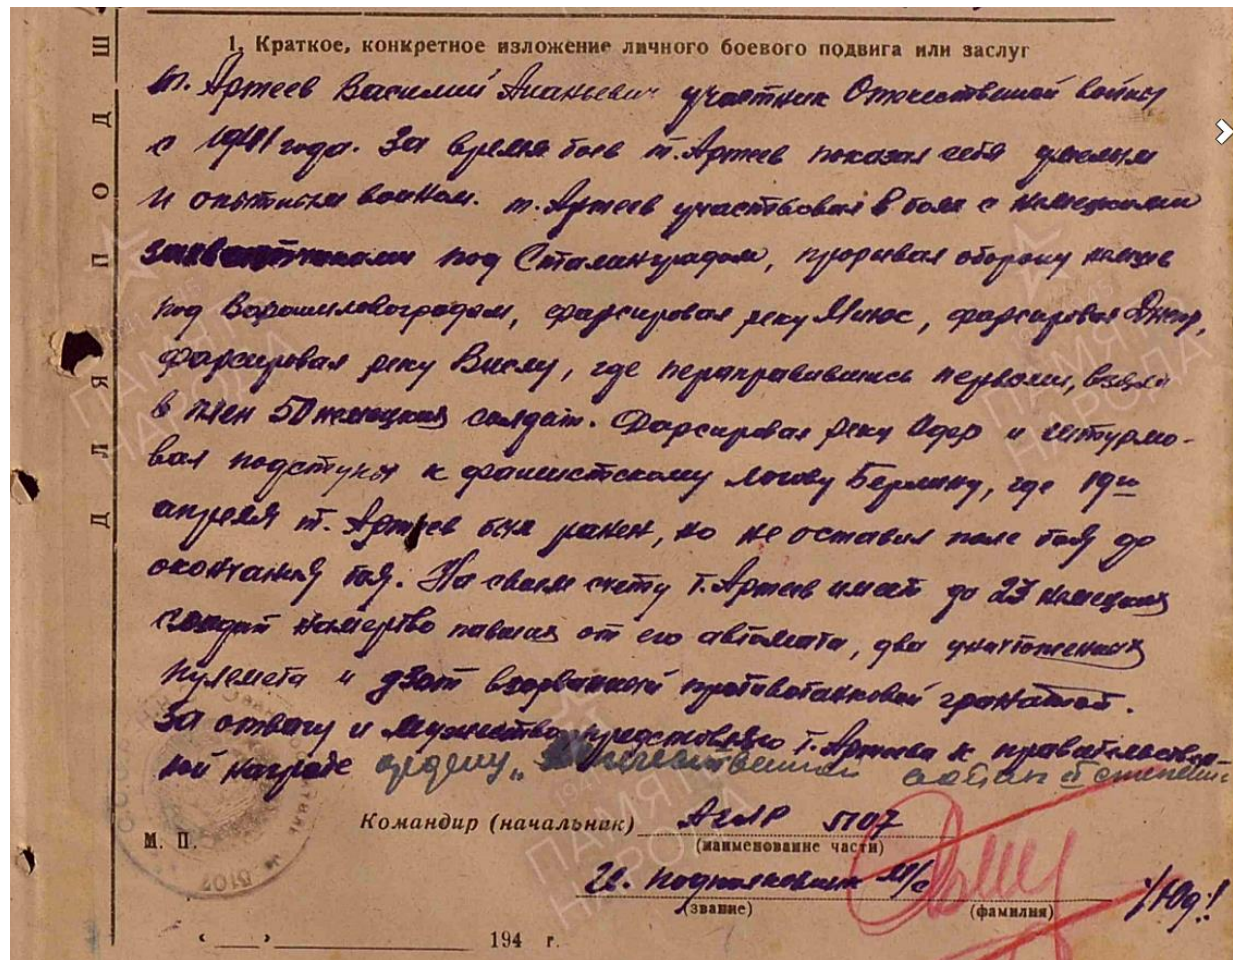 ДЛЯ ПОДШ
1. Краткое, конкретное изложение личного боевого подвига или заслуг
т. Артеев Василий Ананьевич участник Отечественной войны
с 1941 года. За время боев т. Артеев показал себя умелым
и опытным воином. т. Артеев участвовал в боях с немецкими
захватчиками под Сталинградом, прорывал оборону немцев
под Ворошиловоградом, фарсировал реку Миюс, фарсировал Днепр,
фарсировал реку Вислу, где переправившись первыми, взяли
в плен 50 немецких солдат. Фарсировал реку Одер и штурмо-
вал подступы к фашистскому логову Берлину, где 19го
апреля т. Артеев был ранен, но не оставил поле боя до
окончания боя. На своем счету т. Артеев имеет до 23 немецких
солдат намертво павших от его автомата, два уничтоженных
пулемета и дзот взорванный противотанковой гранатой.
За отвагу и мужество представляю т. Артеева к правительствен-
ной награде ордену „Отечественной войны II степени
Командир (начальник) 5107
(наименование части)
М. П.
подполковник м/с
(звание) (фамилия)
« » 194 г.
5107
ПАМЯТЬ
НАРОДА
ПАМЯТЬ
НАРОДА
ПАМЯТЬ
НАРОДА